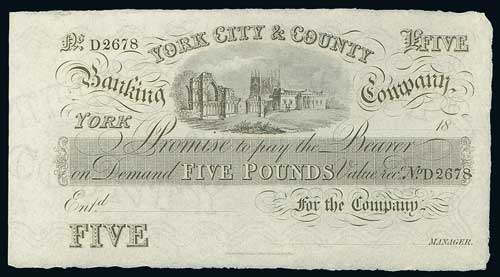 No. D2678 YORK CITY & COUNTY £FIVE
Banking Company.
YORK 18
I Promise to pay the Bearer
on Demand FIVE POUNDS Value rec. No. D2678
Ent.d For the Company.
FIVE MANAGER.